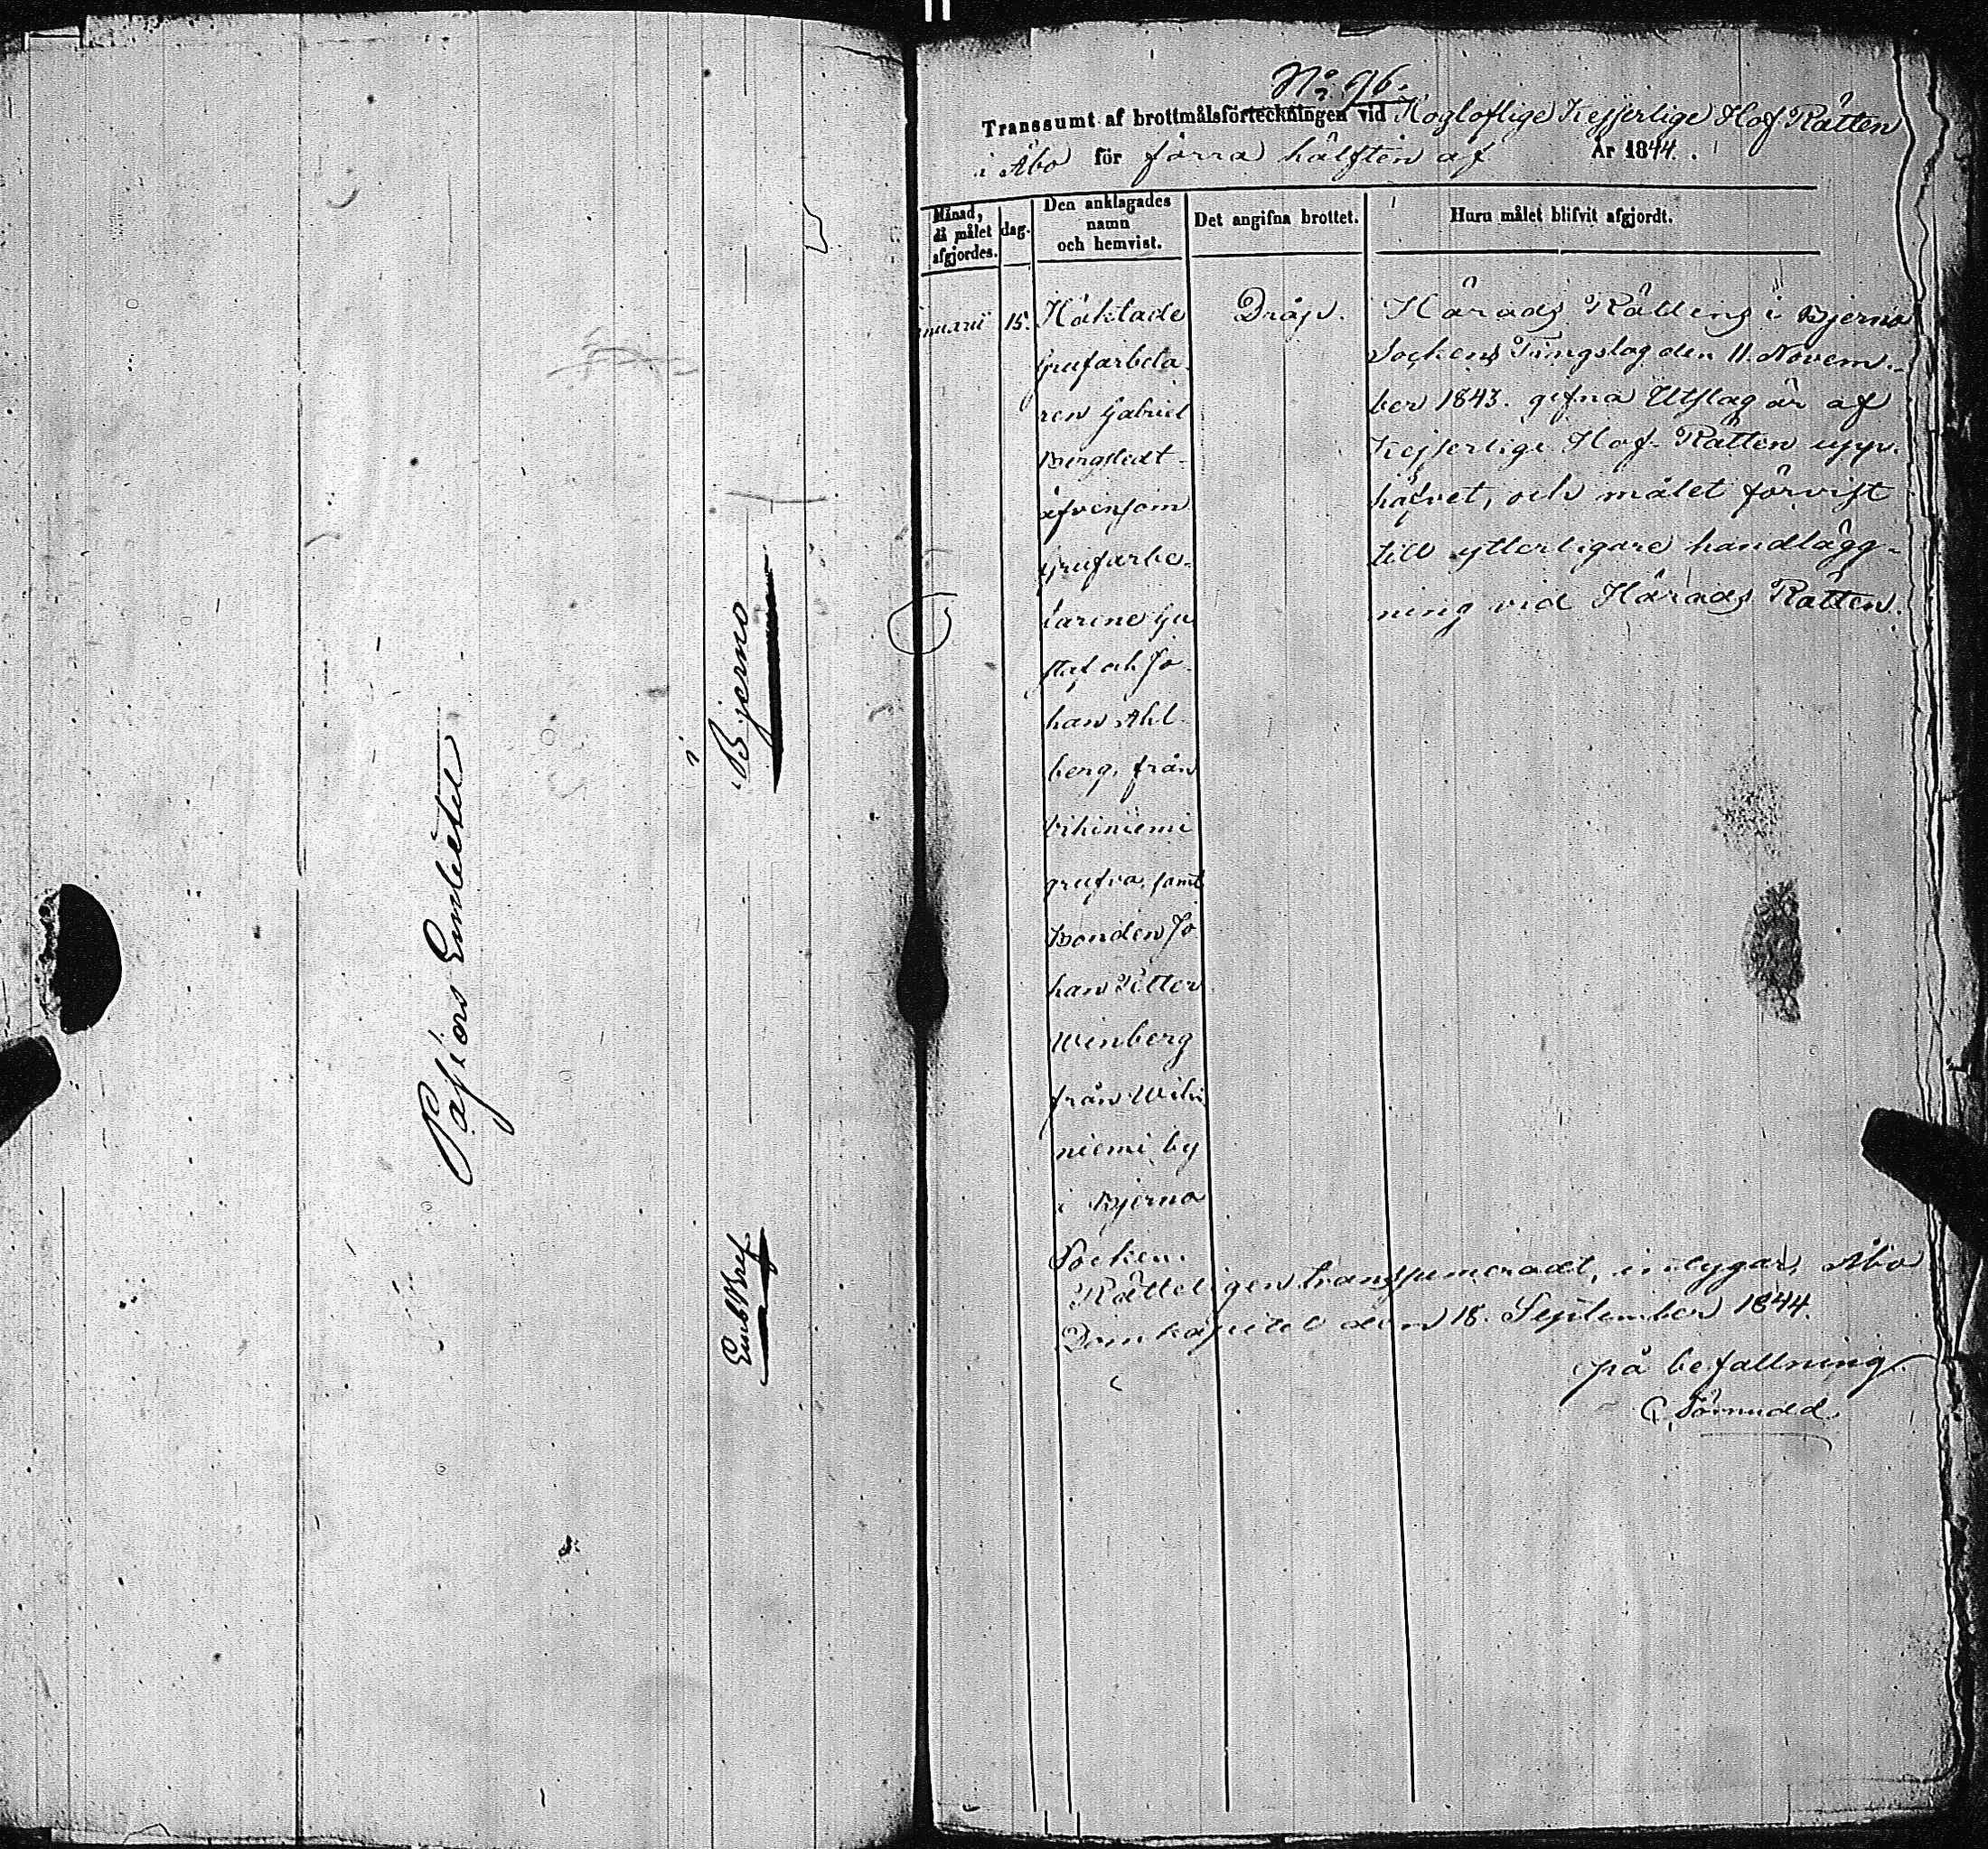 Pastors Embetet
i
Bjerno
Emb. Bref
N:o 96.
Transsumt af brottmålsförteckningen vid Högloflige Kejserlige Hof Rätten
i Åbo för förra hälften af År 1844.
Månad, då målet afgjordes.
dag.
Den anklagades namn och hemvist.
Det angifna brottet.
Huru målet blifvit afgjordt.
nuarii 15.
Häktade
Grufarbeta-
ren Gabriel
Bergstedt
äfvensom
Grufarbe-
tarene Gu
staf och Jo-
han Ahl-
berg, från
Vihiniemi
grufva, samt
Bonden Jo
han Petter
Winberg
från Wihi
niemi by
i Bjerno
Socken.
Dråp.
Härads Rättens i Bjerno
Sockens Tingslag den 11. Novem-
ber 1843. gifna Utslag är af
Kejserlige Hof-Rätten upp-
häfvet, och målet förvist
till ytterligare handlägg-
ning vid Härads Rätten.
Rätteligen transsumeradt, intygar, Åbo
Domkapitel den 18. September 1844.
På befallning
Törnudd